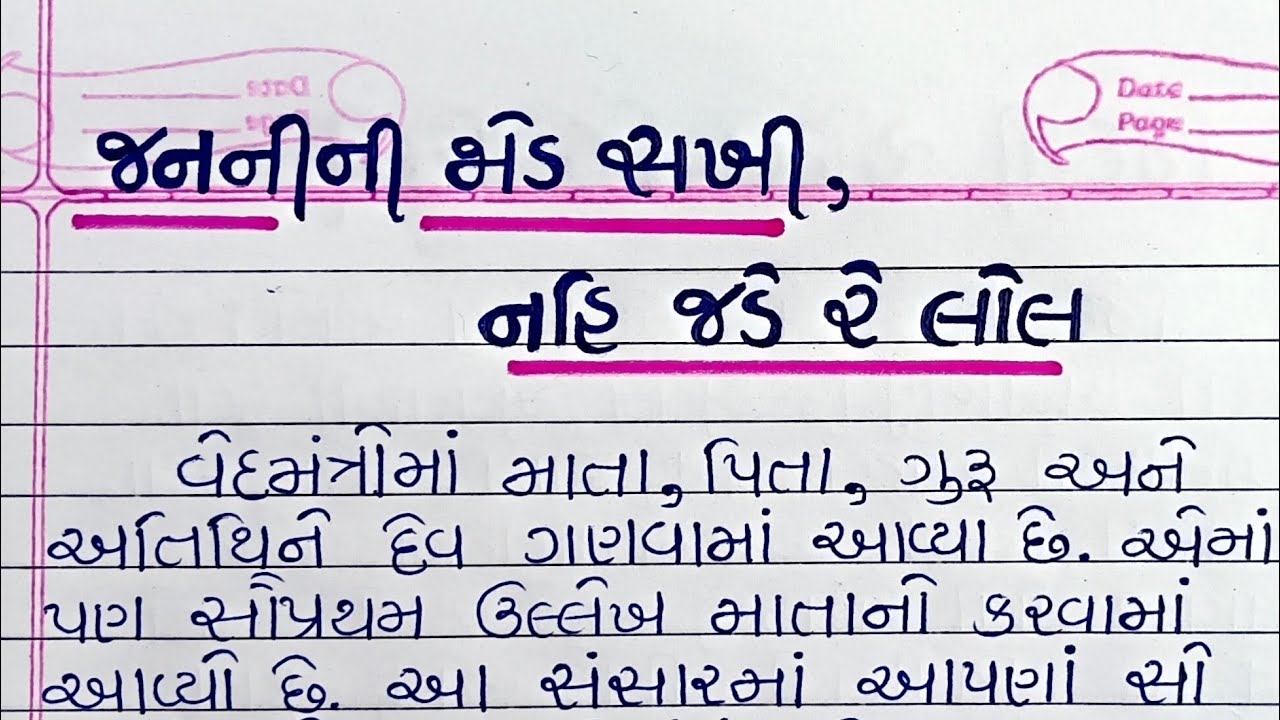 Date
Page
જનનીની જોડ સખી,
નહિ જડે રે લોલ
વેદમંત્રોમાં માતા, પિતા, ગુરૂ અને
અતિથિને દેવ ગણવામાં આવ્યા છે. એમાં
પણ સૌપ્રથમ ઉલ્લેખ માતાનો કરવામાં
આવ્યો છે. આ સંસારમાં આપણાં સૌ